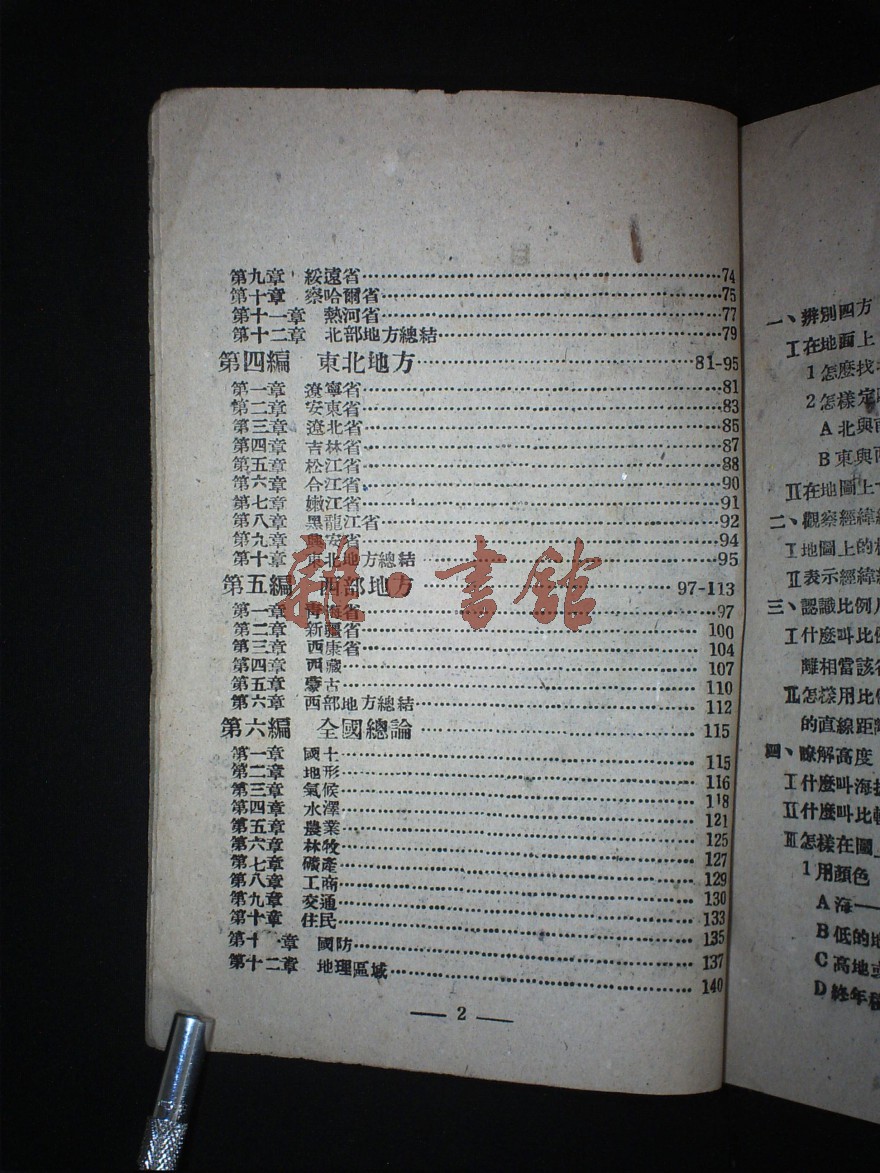 第九章 綏遠省……74
第十章 察哈爾省……75
第十一章 熱河省……77
第十二章 北部地方總結……79
第四編 東北地方……81-95
第一章 遼寧省……81
第二章 安東省……83
第三章 遼北省……85
第四章 吉林省……87
第五章 松江省……88
第六章 合江省……90
第七章 嫩江省……91
第八章 黑龍江省……92
第九章 興安省……94
第十章 東北地方總結……95
第五編 西部地方……97-113
第一章 青海省……97
第二章 新疆省……100
第三章 西康省……104
第四章 西藏……107
第五章 蒙古……110
第六章 西部地方總結……112
第六編 全國總論……115
第一章 國土……115
第二章 地形……116
第三章 氣候……118
第四章 水澤……121
第五章 農業……125
第六章 林牧……127
第七章 礦產……129
第八章 工商……130
第九章 交通……133
第十章 住民……135
第十一章 國防……137
第十二章 地理區域……140
— 2 —
雜·書館
一、辨別四方
I在地面上
1怎麼找
2怎樣定
A北與南
B東與西
II在地圖上
二、觀察經緯
I地圖上的
II表示經緯
三、認識比例
I什麼叫比例
離相當該
II怎樣用比
的直線距離
四、瞭解高度
I什麼叫海拔
II什麼叫比較
III怎樣在圖上
1用顏色
A海—
B低的地
C高地或
D終年積